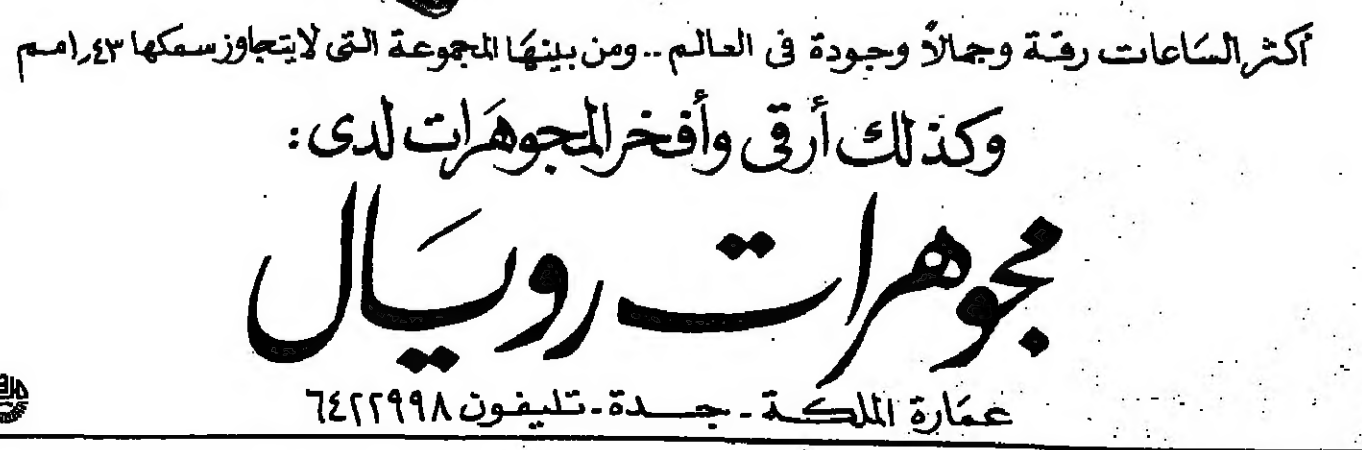 أكثر الساعات رقة وجمالاً وجودة في العالم .. ومن بينهَا المجموعة التى لا يتجاوز سمكها ١٫٤٣مم
وكذلك أرقى وأفخر المجوهَرات لدى :
مجوهرات رويَال
عمَارة الملكة - جدة - تليفون ٦٤٢٢٩٩٨